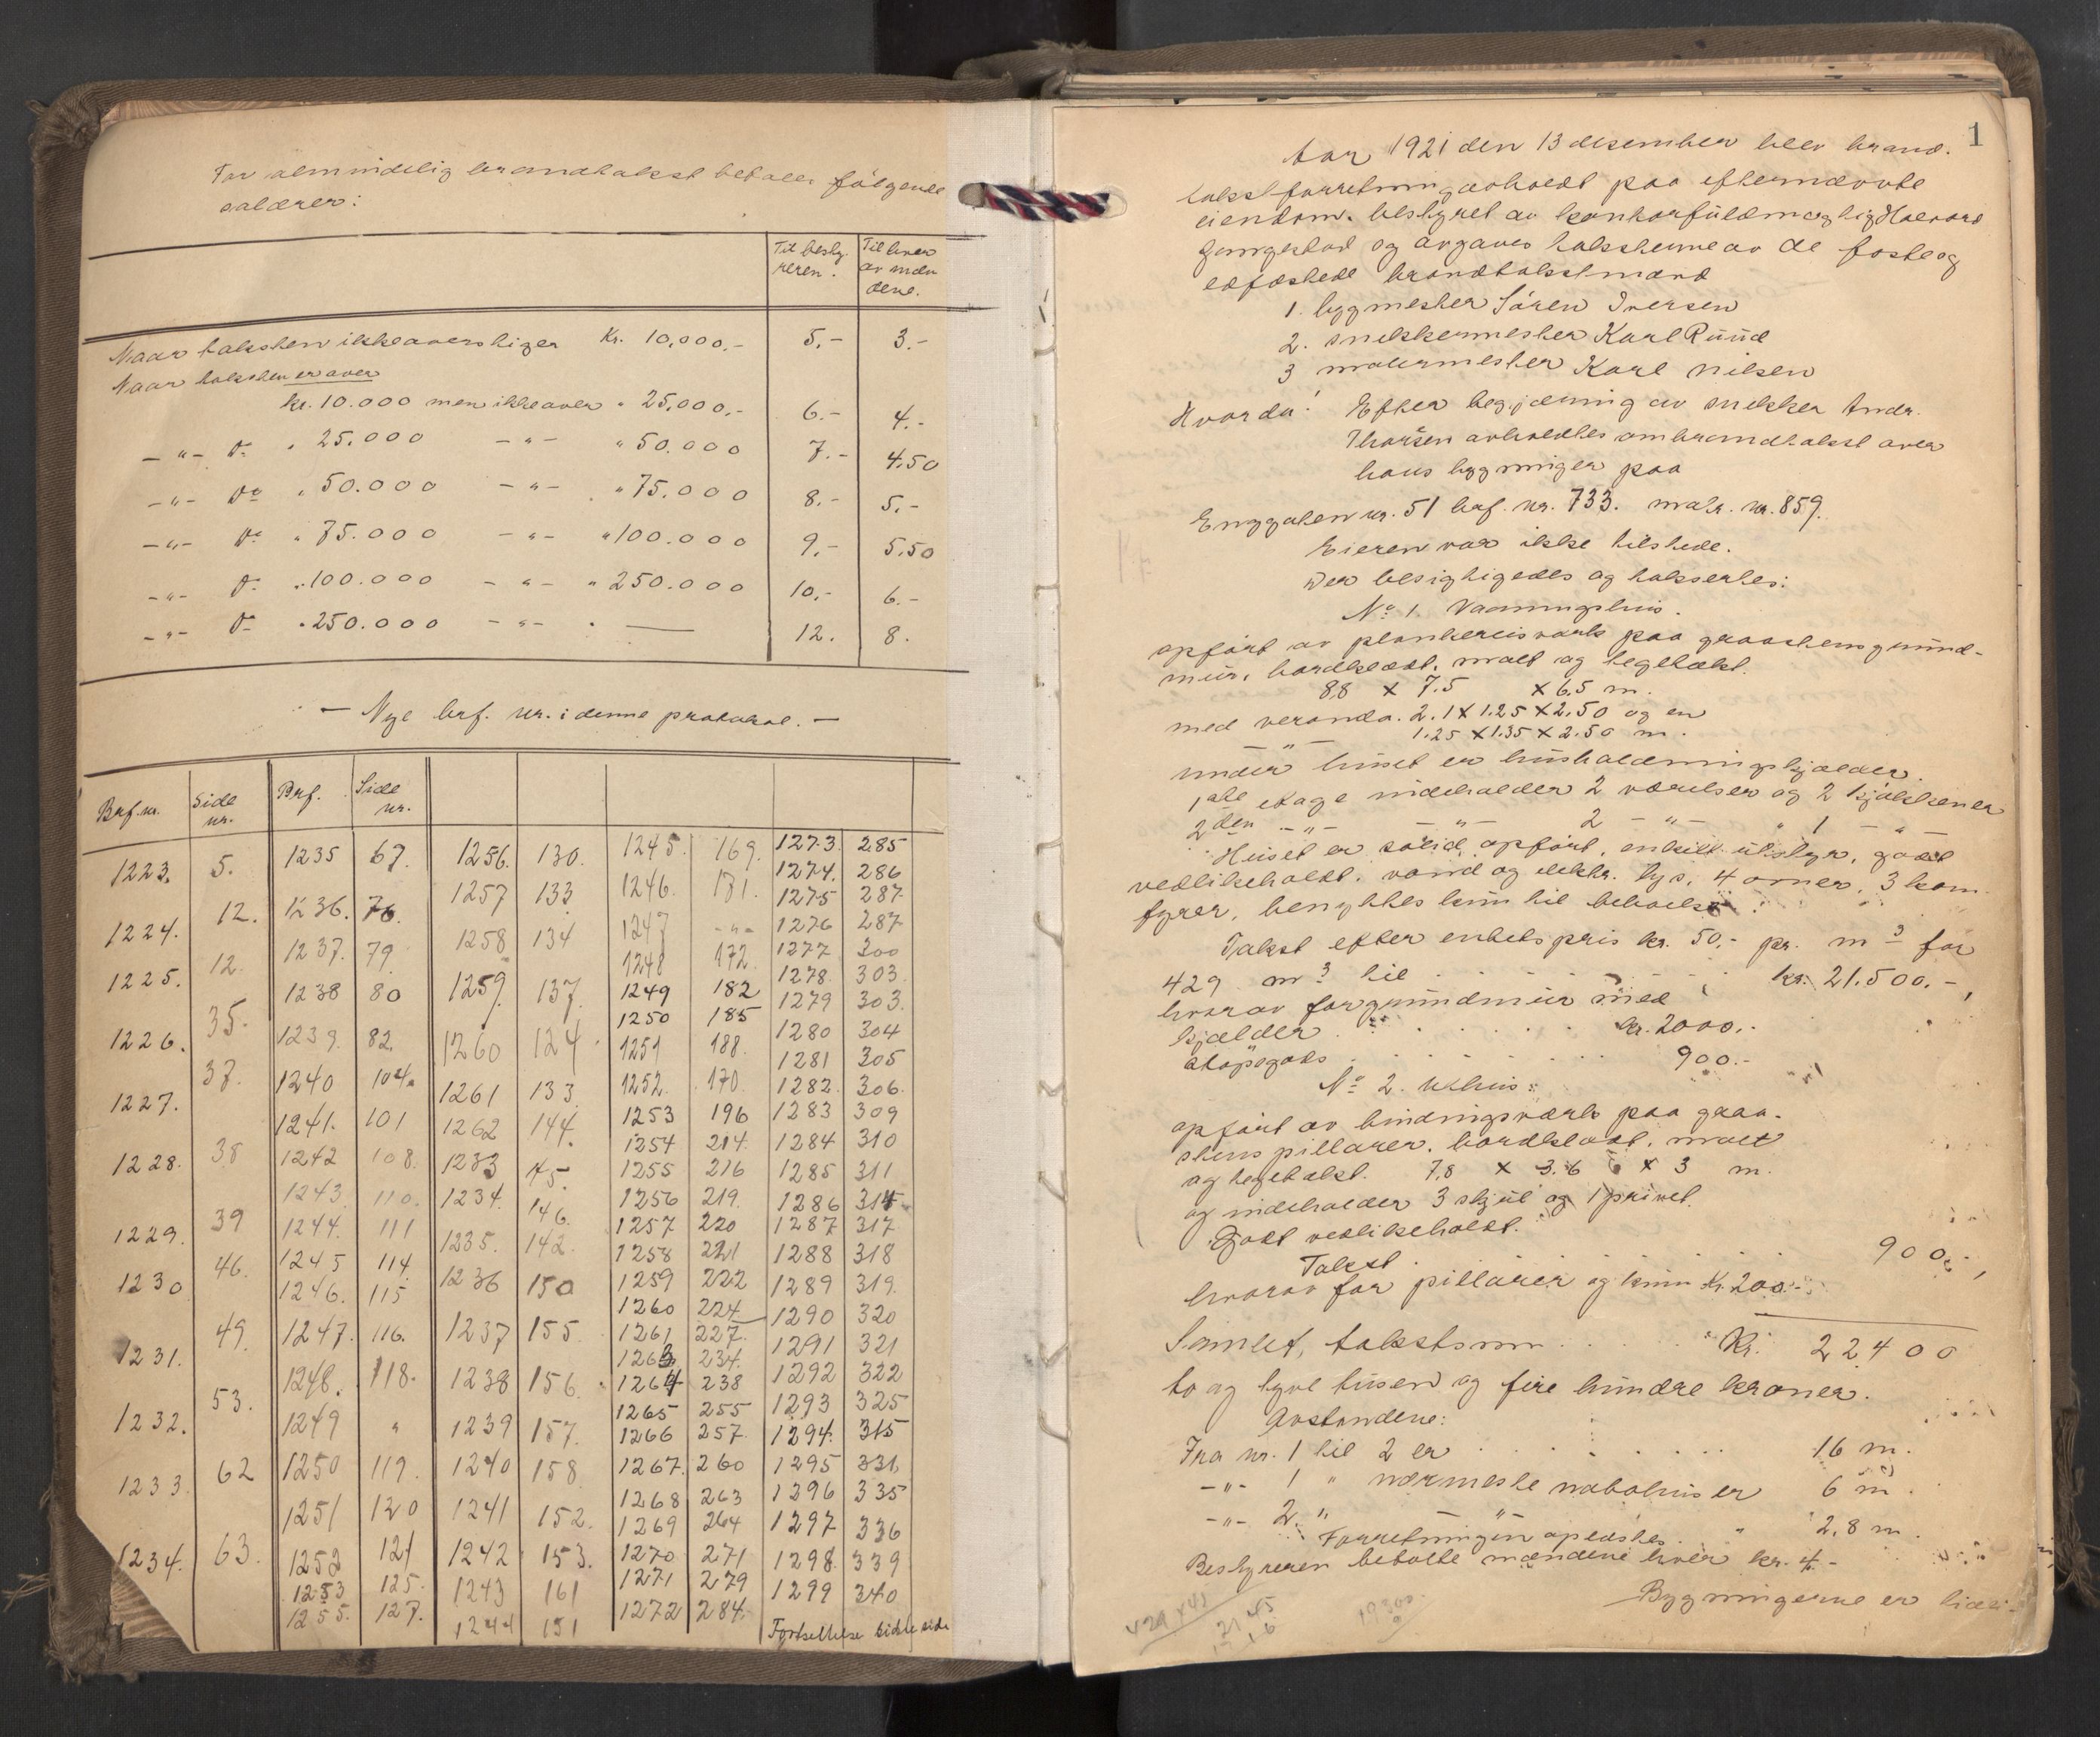 For almindelig brandtakst betales følgende
salærer:
Til besty-
reren.
Til hver
av mæn
dene.
Naar taksten ikke overstiger Kr. 10,000.- 5.- 3.-
Naar taksten er over
kr. 10.000 men ikke over " 25,000.- 6.- 4.-
-"- do " 25.000 -"- " 50.000 7.- 4.50
-"- do " 50.000 -"- " 75.000 8.- 5.-
-"- do " 75.000 -"- " 100.000 9.- 5.50
-"- do " 100.000 -"- " 250.000 10.- 6.-
-"- do " 250.000 -"- " — 12. 8.
- Nye brf. nr. i denne protokol. -
Brf. nr. Side nr. Brf. Side nr.
1223. 5.
1224. 12.
1225. 12.
1226. 35.
1227. 37.
1228. 38
1229. 39
1230 46.
1231. 49.
1232. 53.
1233. 62
1234. 63.
1235 67.
1236. 76.
1237. 79.
1238 80
1239. 82.
1240 104.
1241. 101
1242 108.
1243 110.
1244. 111
1245 114
1246. 115
1247. 116.
1248. 118.
1249 "
1250 119.
1251 120
1252 121
1253 125.
1255. 127.
1256. 130.
1257 133
1258 134
1259. 137.
1260 124
1261 133
1262 144.
1233 145.
1234. 146.
1235. 142.
1236 150
1237 155.
1238 156.
1239 157.
1240 158.
1241 152.
1242 153.
1243 161
1244 151
1245. 169.
1246. 171.
1247 -"-
1248 172.
1249 182
1250 185
1251 188.
1252. 170.
1253 196
1254 214.
1255 216
1256 219.
1257 220
1258 221
1259 222
1260 224
1261 227.
1263 234.
1264 238
1265 255
1266 257.
1267. 260
1268 263
1269 264
1270 271
1271 279
1272 284.
1273. 285
1274. 286
1275 287.
1276 287
1277 300
1278. 303.
1279 303.
1280 304
1281 305
1282. 306.
1283 309
1284 310
1285 311
1286 314
1287 317
1288 318
1289 319.
1290 320
1291 321
1292 322
1293 325
1294. 315
1295 331,
1296 335
1297 336
1298. 339
1299 340
Fortsettelse sidste side
1
Aar 1921 den 13 desember blev brand-
takstforretning avholdt paa efternævnte
eiendom. bestyret av kontorfuldmægtig Halvard
Jungestad og avgaves taksterne av de faste og
edfæstede brandtakstmænd
1. bygmester Sören Iversen
2. snekkermester Karl Ruud
3 malermester Karl Nilsen
Hvorda: Efter begjæring av snekker Andr.
Thorsen avholdtes ombrandtakst over
hans bygninger paa
Enggaten nr. 51 brf. nr. 733. matr. nr. 859.
Eieren var ikke tilstede.
Der besigtigedes og taksertes:
No 1. Vaaningshus.
opført av plankereisverk paa graastensgrund-
mur, bordklædt, malt og tegltækt.
8,8 x 7.5 x 6,5 m.
med veranda. 2.1 x 1.25 x 2.50 og en
-"- 1.25 x 1.35 x 2.50 m.
under huset er husholdningskjælder.
1ste etage indeholder 2 værelser og 2 kjøkkener
2den -"- -"- 2 -"- " 1 -"-
Huset er solid opført, enkelt utstyr, godt
vedlikeholdt. vand og elektr. lys. 4 ovner, 3 kom
fyrer, benyttes kun til beboelse.
Takst efter enhetspris kr. 50.- pr. m3 for
429 m3 til kr. 21.500.-,
hvorav for grundmur med
kjælder kr. 2000.-
støpegods 900.-
No 2. Uthus:
opført av bindingsværk paa graa-
stens pillarer. bordklædt, malt
og teglteækt. 7,8 x 3.6 x 3 m.
og indeholder 3 skjul og 1 privet.
Godt vedlikeholdt.
Takst 900.-,
hvorav for pillarer og kum Kr. 200.-
Samlet, takstsum Kr. 22400
to og tyve tusen og fire hundre kroner.
Avstandene:
Fra nr. 1 til 2 er 16 m.
-"- 1 " nærmeste nabohus er 6 m.
-"- 2 " " " 2,8 m.
Forretningen oplæstes.
Bestyreren betalte mændene hver kr. 4.-
Bygningerne er